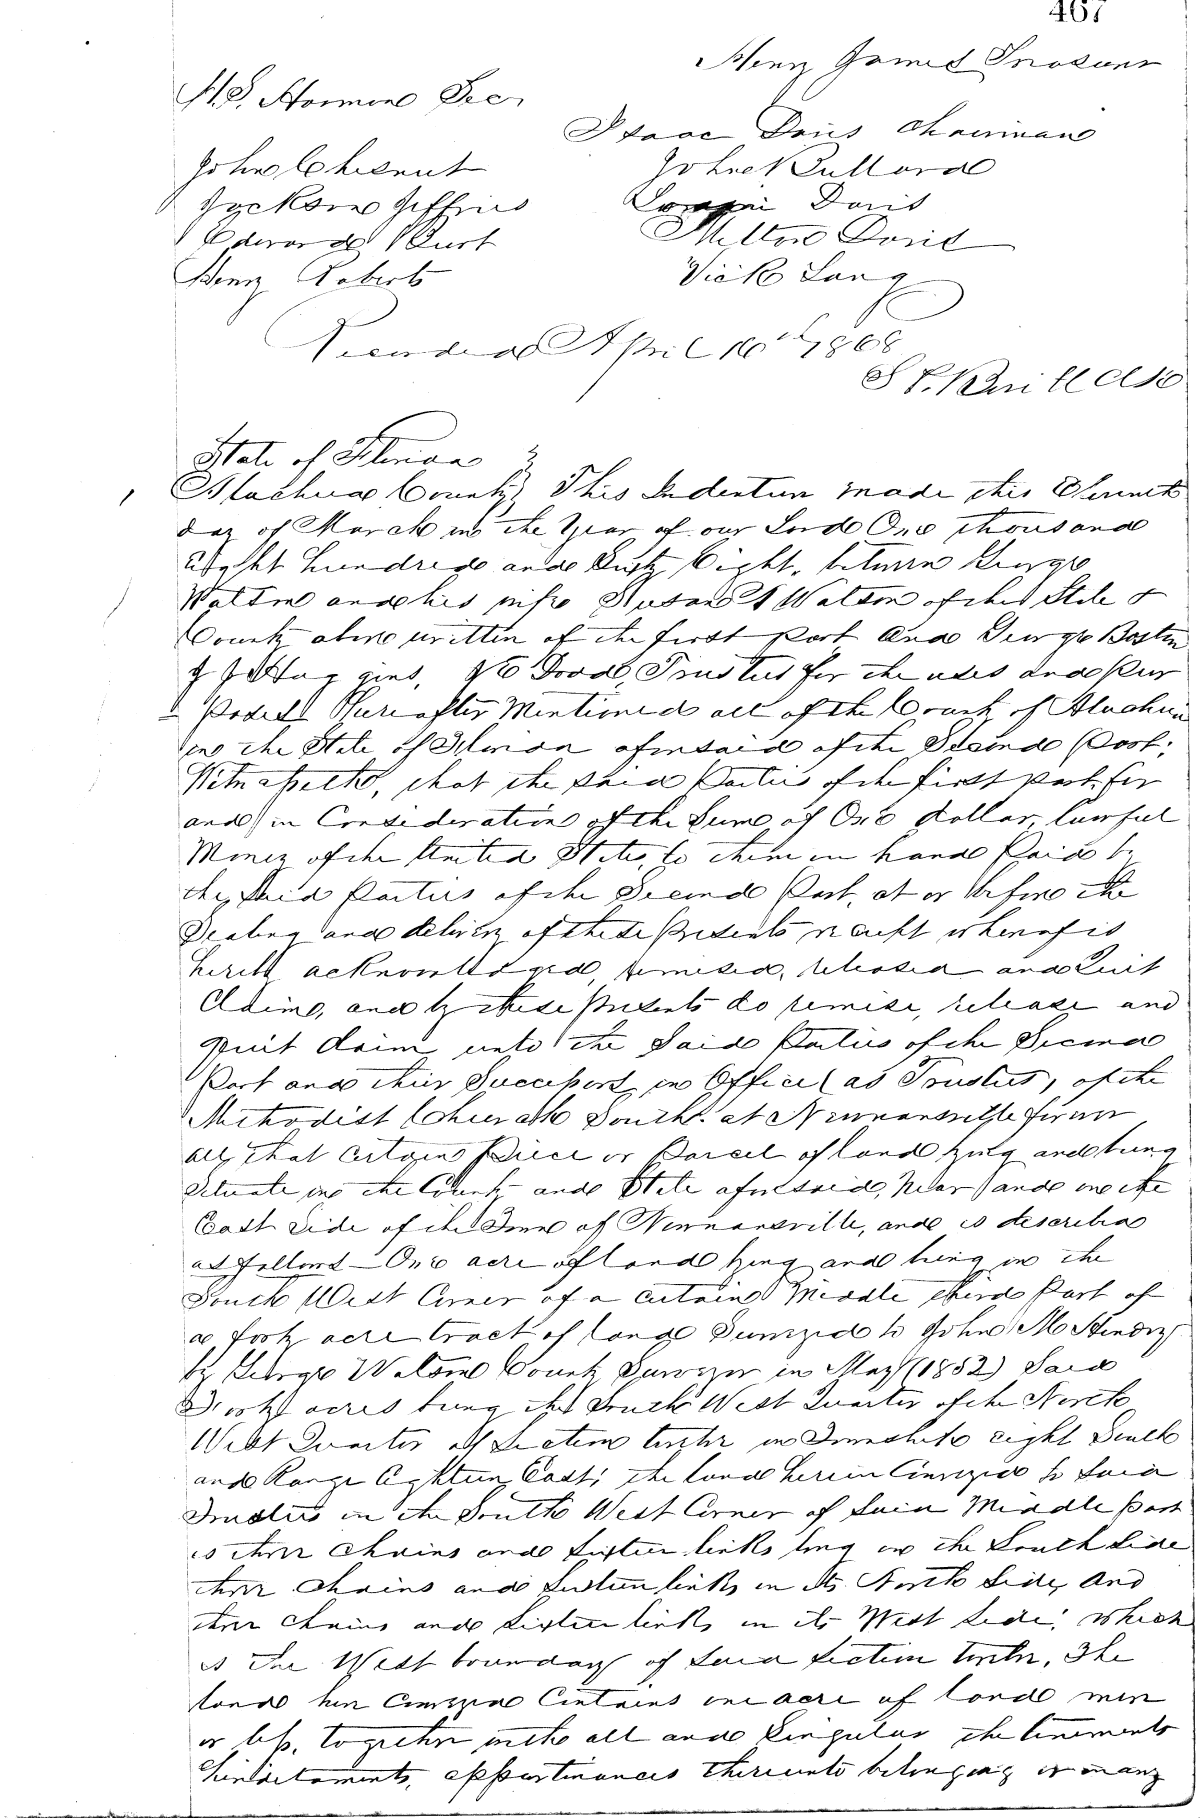 467
Henry James Treasurer
H.S. Harmon Sec.
Isaac Davis Chairman
John Chesnut John Bullard
Jackson Jeffries Davis
Edward Burt Milton Davis
Henry Roberts Vick Long
Recorded April 16th 1868
State of Florida }
Alachua County } This Indenture made this Eleventh
day of March in the Year of our Lord One thousand
Eight hundred and Sixty Eight, between George
Watson and his wife Susan Watson of the State &
County above written of the first part and George Boston
Trustees for the uses and Pur
poses Hereafter Mentioned all of the County of Alachua
in the State of Florida aforesaid of the Second Part;
Witnesseth, that the said Parties of the first part for
and in Consideration of the Sum of One dollar, lawful
Money of the United States, to them in hand Paid by
the said Parties of the Second Part, at or before the
Sealing and delivery of these Presents receipt whereof is
hereby acknowledged, remised, released and Quit
Claim, and by these presents do remise, release and
quit claim unto the Said Parties of the Second
Part and their Successors in Office (as Trustees) of the
Methodist Church South at Newnansville forever
all that certain Piece or Parcel of land lying and being
Situate in the County and State aforesaid, Near and on the
East Side of the Town of Newnansville, and is described
as follows - One acre of land lying and being in the
South West Corner of a certain Middle third Part of
a forty acre tract of land Surveyed to John M Hendry
by George Watson County Surveyor in May (1852) Said
Forty acres being the South West Quarter of the North
West Quarter of Section twelve in Township eight South
and Range Eighteen East; the land herein Conveyed to Said
Trustees in the South West Corner of Said Middle part
is three Chains and Sixteen links long on the South Side
three Chains and Sixteen links on its North Side, And
three Chains and Sixteen links on its West Side; which
is the West boundary of Said Section twelve. The
land here Conveyed Contains one acre of land more
or less, together with all and Singular the tenements
hereditaments, appurtinances thereunto belonging or in any